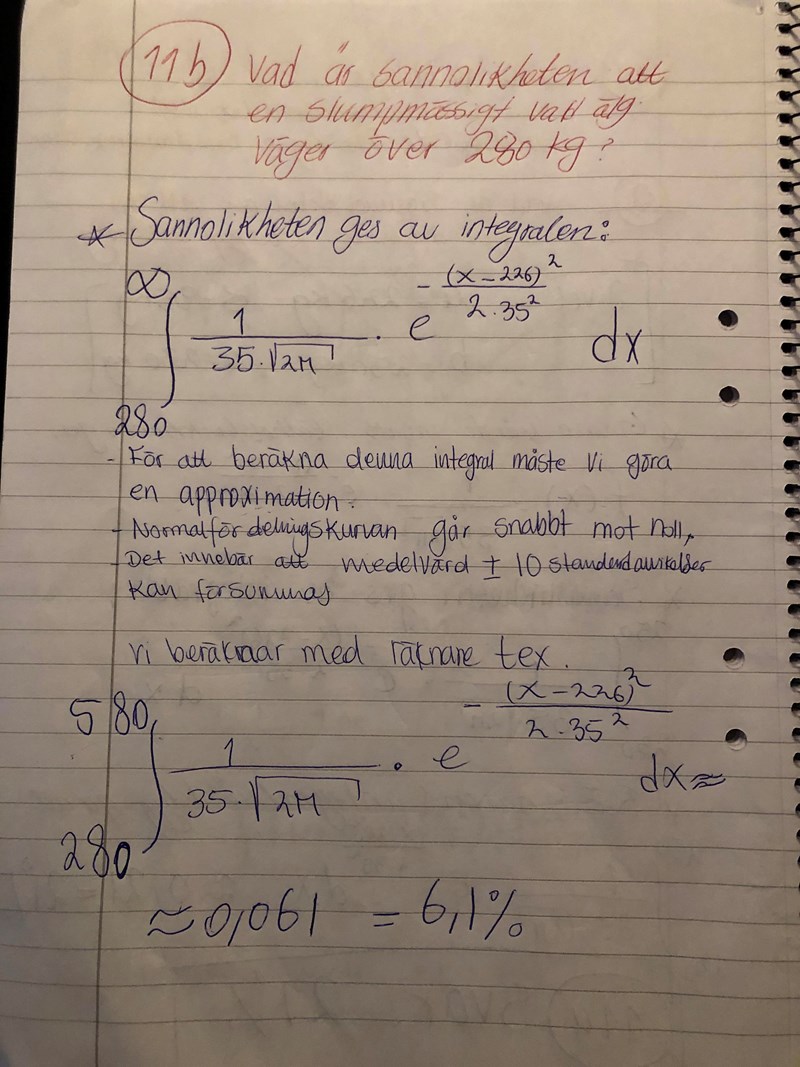 11b) Vad är sannolikheten att
en slumpmässigt vald älg
väger över 280 kg?
* Sannolikheten ges av integralen:
∫_{280}^{∞} 1/(35·√(2π)) · e^{-(x-226)²/(2·35²)} dx
- För att beräkna denna integral måste vi göra
en approximation.
- Normalfördelningskurvan går snabbt mot noll,
- Det innebär att medelvärd ± 10 standardavvikelser
kan försummas
Vi beräknar med räknare tex.
∫_{280}^{580} 1/(35·√(2π)) · e^{-(x-226)²/(2·35²)} dx ≈
≈ 0,061 = 6,1%